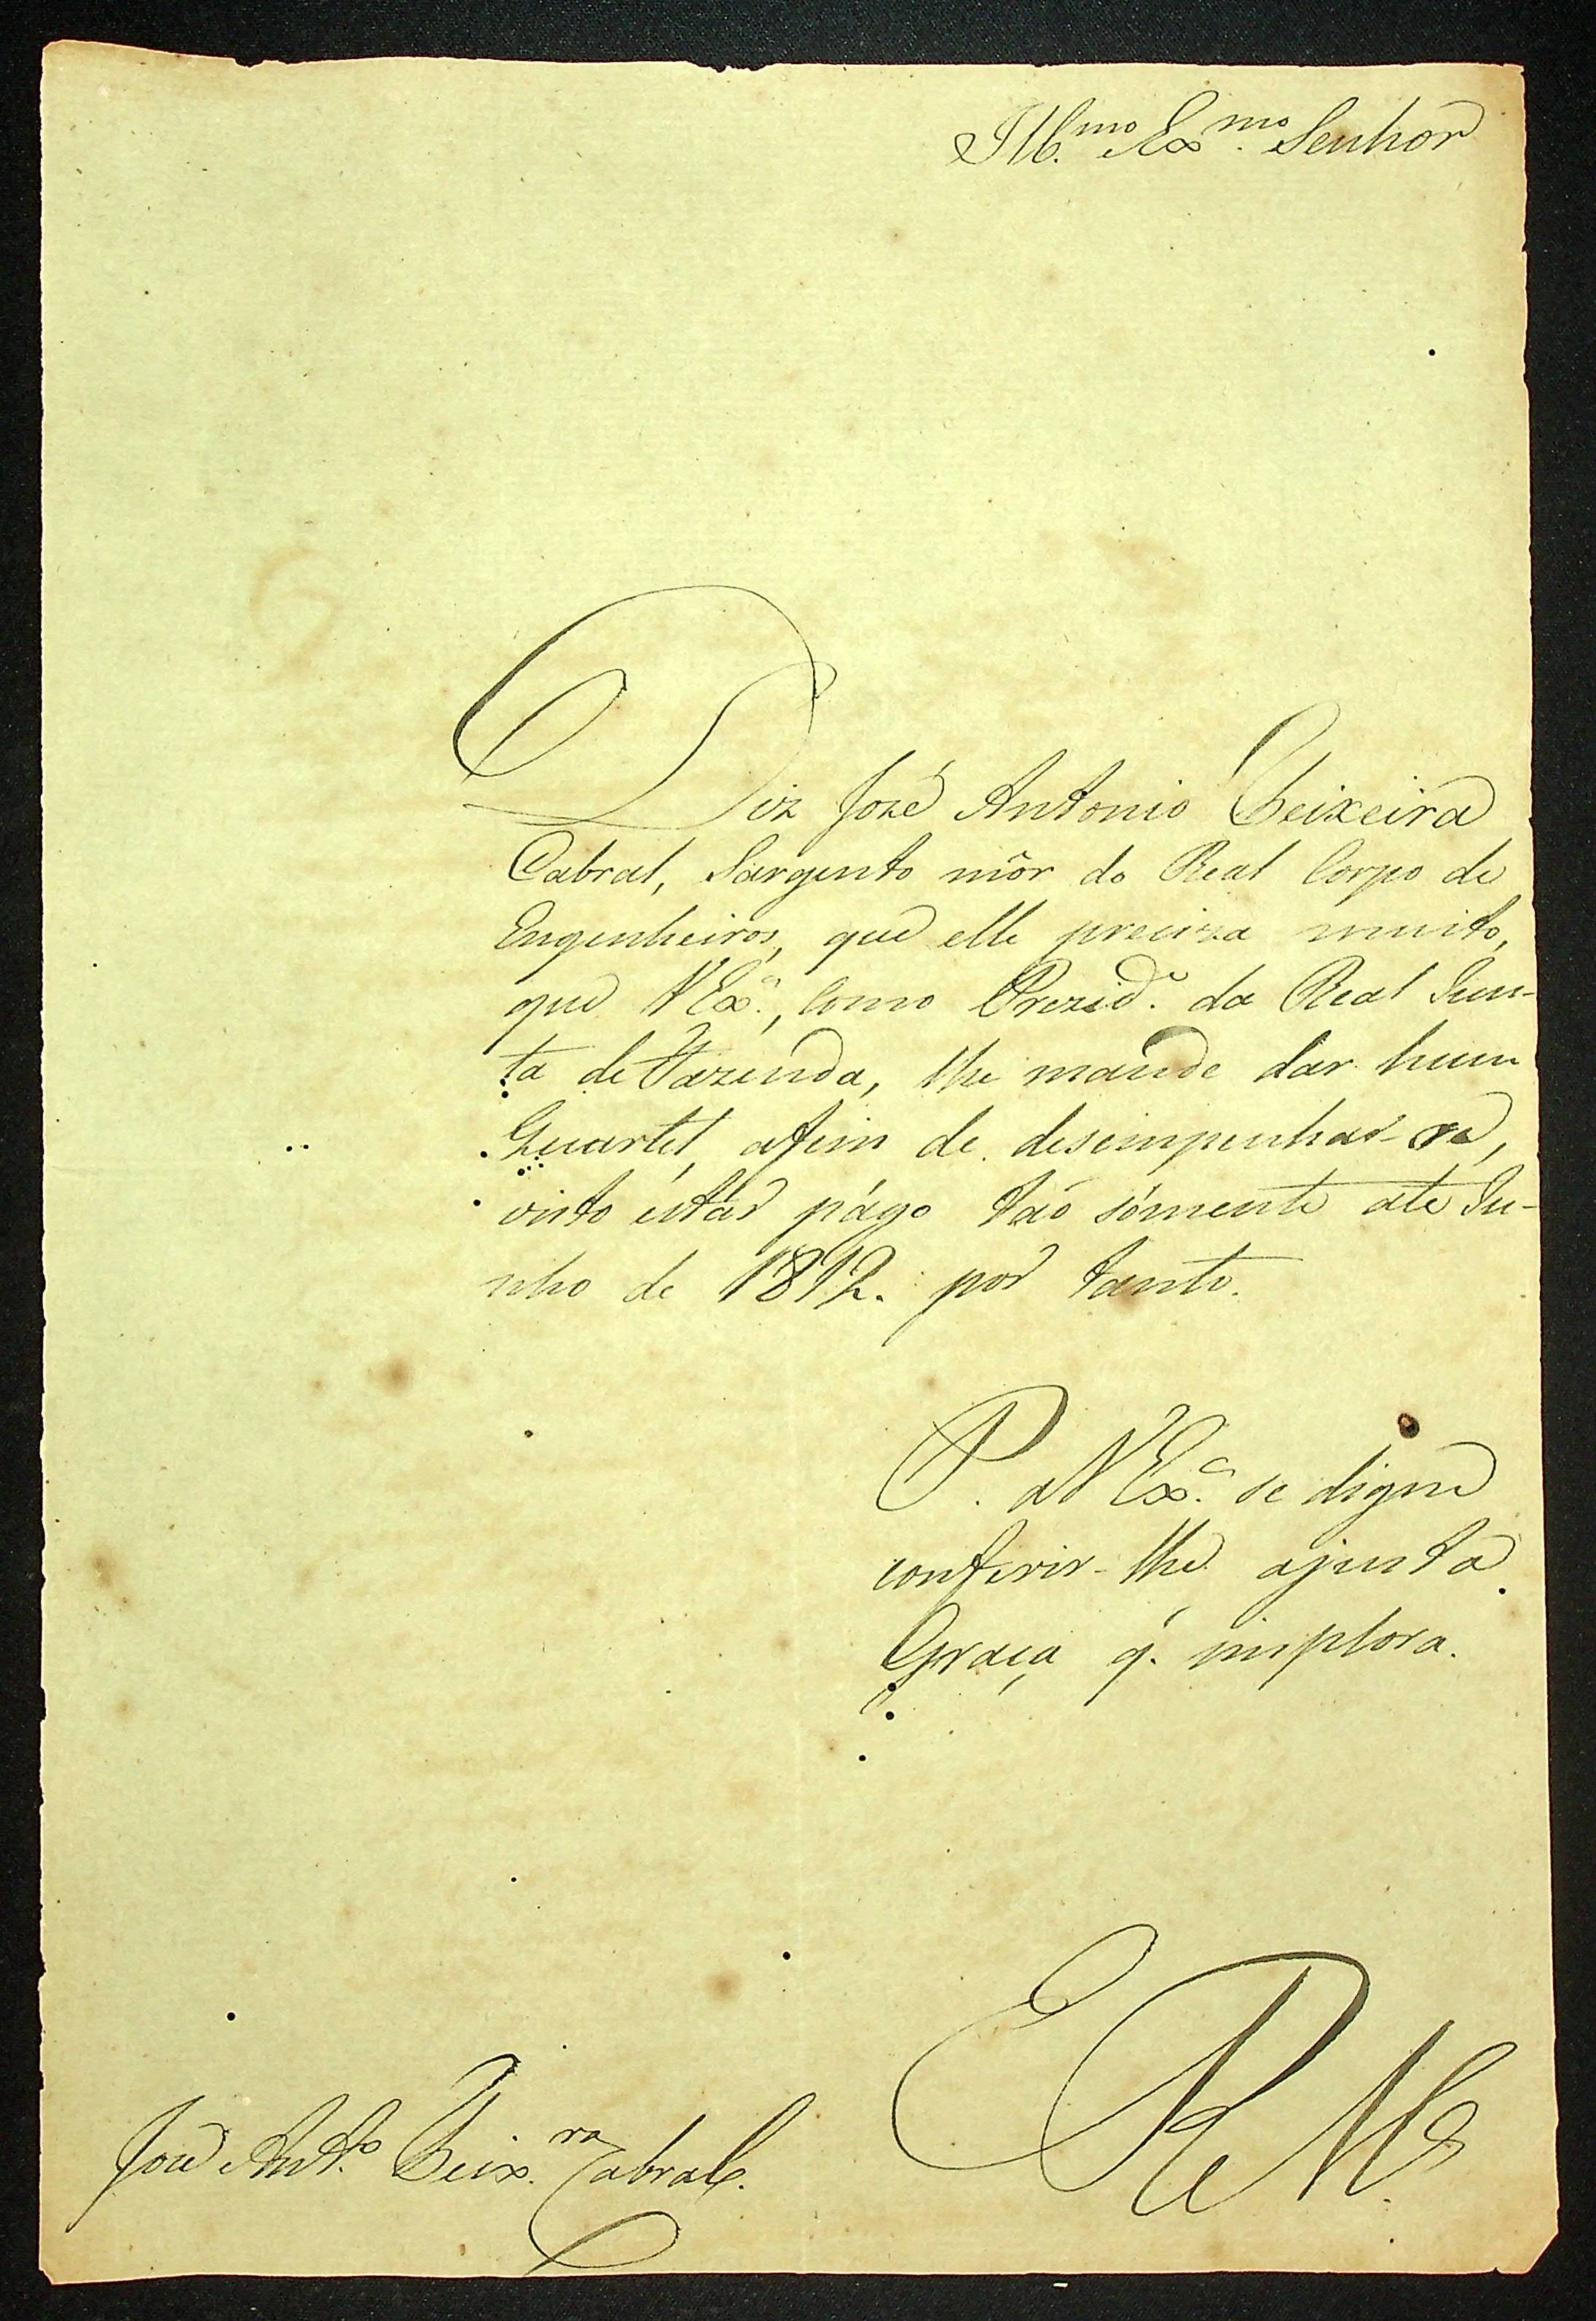 Ill.mo Ex.mo Senhor
Diz Jozé Antonio Teixeira
Cabral, Sargento môr do Real Corpo de
Engenheiros, que elle preciza muito,
que V Ex.ª, como Prezid.e da Real Jun-
ta de Fazenda, lhe mande dar hum
Quartel, afim de desempenhar-se,
visto estár págo taó sómente até Ju-
nho de 1812. por tanto.
P. a V Ex.ª se digne
conferir-lhe ajusta
Graça q. implora.
E R M.ce
José Ant.o Teix.ra Cabral.